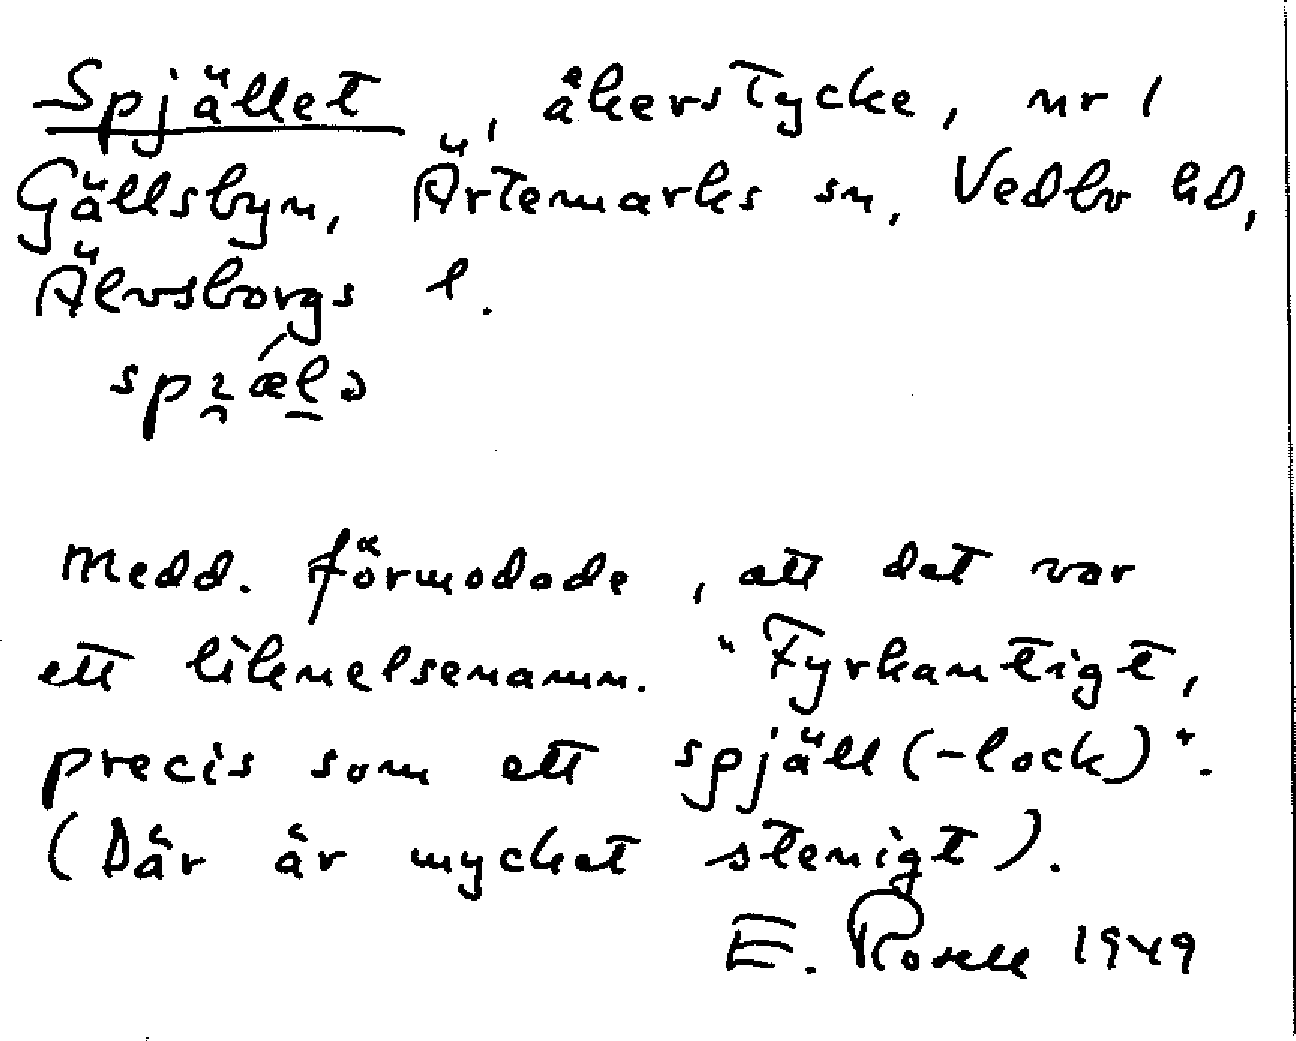 Spjället, åkerstycke, nr 1
Gällsbyn, Ärtemarks sn, Vedbo hd,
Älvsborgs l.
Medd. förmodade, att det var
ett liknelsenamn. "Fyrkantigt,
precis som ett spjäll (-lock)".
(Där är mycket stenigt).
E. Rosell 1949